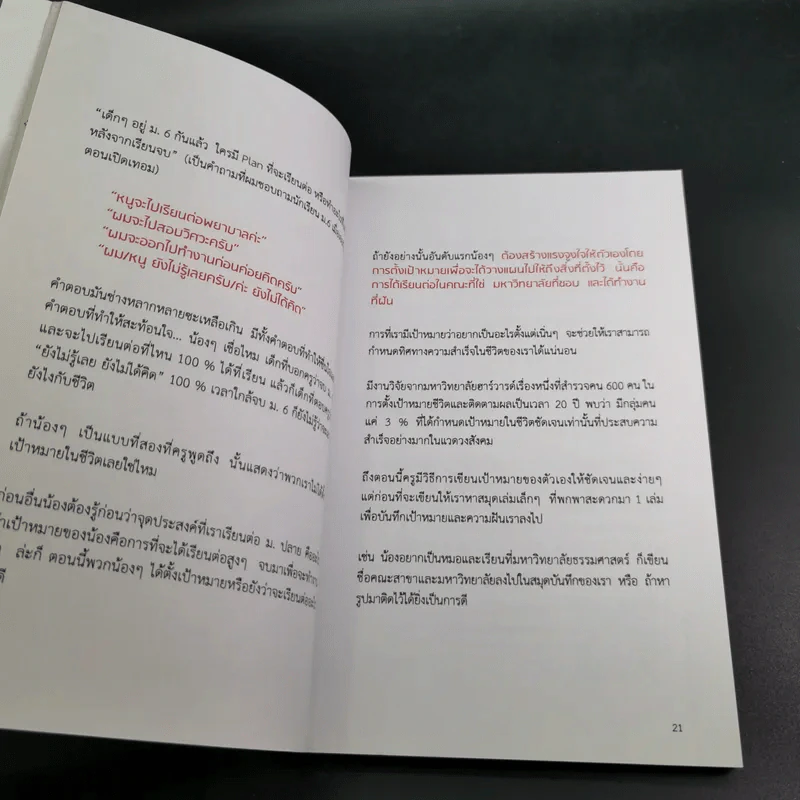 "เด็กๆ อยู่ ม. 6 กันแล้ว ใครมี Plan ที่จะเรียนต่อ หรือทำ
หลังจากเรียนจบ" (เป็นคำถามที่ผมชอบถามนักเรียน ม.6
ตอนเปิดเทอม)
"หนูจะไปเรียนต่อพยาบาลค่ะ"
"ผมจะไปสอบวิศวะครับ"
"ผมจะออกไปทำงานก่อนค่อยคิดครับ"
"ผม/หนู ยังไม่รู้เลยครับ/ค่ะ ยังไม่ได้คิด"
คำตอบมันช่างหลากหลายซะเหลือเกิน มีทั้งคำตอบที่ทำให้
คำตอบที่ทำให้สะท้อนใจ... น้องๆ เชื่อไหม เด็กที่บอกครูว่าจบ ม.
และจะไปเรียนต่อที่ไหน 100 % ได้ที่เรียน แล้วก็เด็กที่ตอบครู
"ยังไม่รู้เลย ยังไม่ได้คิด" 100 % เวลาใกล้จบ ม. 6 ก็ยังไม่รู้ว่า
ยังไงกับชีวิต
ถ้าน้องๆ เป็นแบบที่สองที่ครูพูดถึง นั้นแสดงว่าพวกเราไม่ได้
เป้าหมายในชีวิตเลยใช่ไหม
ก่อนอื่นน้องต้องรู้ก่อนว่าจุดประสงค์ที่เราเรียนต่อ ม. ปลาย คือ
เป้าหมายของน้องคือการที่จะได้เรียนต่อสูงๆ จบมาเพื่อจะทำงาน
ล่ะก็ ตอนนี้พวกน้องๆ ได้ตั้งเป้าหมายหรือยังว่าจะเรียนต่อ
ดี
ถ้ายังอย่างนั้นอันดับแรกน้องๆ ต้องสร้างแรงจูงใจให้ตัวเองโดย
การตั้งเป้าหมายเพื่อจะได้วางแผนไปให้ถึงสิ่งที่ตั้งไว้ นั่นคือ
การได้เรียนต่อในคณะที่ใช่ มหาวิทยาลัยที่ชอบ และได้ทำงาน
ที่ฝัน
การที่เรามีเป้าหมายว่าอยากเป็นอะไรตั้งแต่เนิ่นๆ จะช่วยให้เราสามารถ
กำหนดทิศทางความสำเร็จในชีวิตของเราได้แน่นอน
มีงานวิจัยจากมหาวิทยาลัยฮาร์วารด์เรื่องหนึ่งที่สำรวจคน 600 คน ใน
การตั้งเป้าหมายชีวิตและติดตามผลเป็นเวลา 20 ปี พบว่า มีกลุ่มคน
แค่ 3 % ที่ได้กำหนดเป้าหมายในชีวิตชัดเจนเท่านั้นที่ประสบความ
สำเร็จอย่างมากในแวดวงสังคม
ถึงตอนนี้ครูมีวิธีการเขียนเป้าหมายของตัวเองให้ชัดเจนและง่ายๆ
แต่ก่อนที่จะเขียนให้เราหาสมุดเล่มเล็กๆ ที่พกพาสะดวกมา 1 เล่ม
เพื่อบันทึกเป้าหมายและความฝันเราลงไป
เช่น น้องอยากเป็นหมอและเรียนที่มหาวิทยาลัยธรรมศาสตร์ ก็เขียน
ชื่อคณะสาขาและมหาวิทยาลัยลงไปในสมุดบันทึกของเรา หรือ ถ้าหา
รูปมาติดไว้ได้ยิ่งเป็นการดี
21